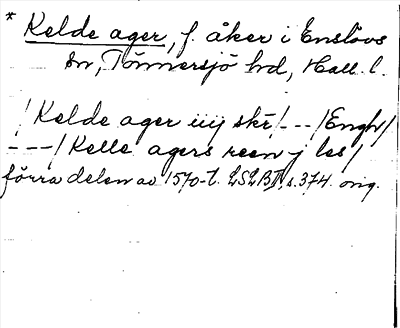 * Kelde ager, f. åker i Enslövs
sn, Tönnersjö hd, Hall. l.
/Kelde ager iiij skr/---/Engh/
---/Kelle agers reen j les/
förra delen av 1570-t. LSLBI, s. 374. orig.